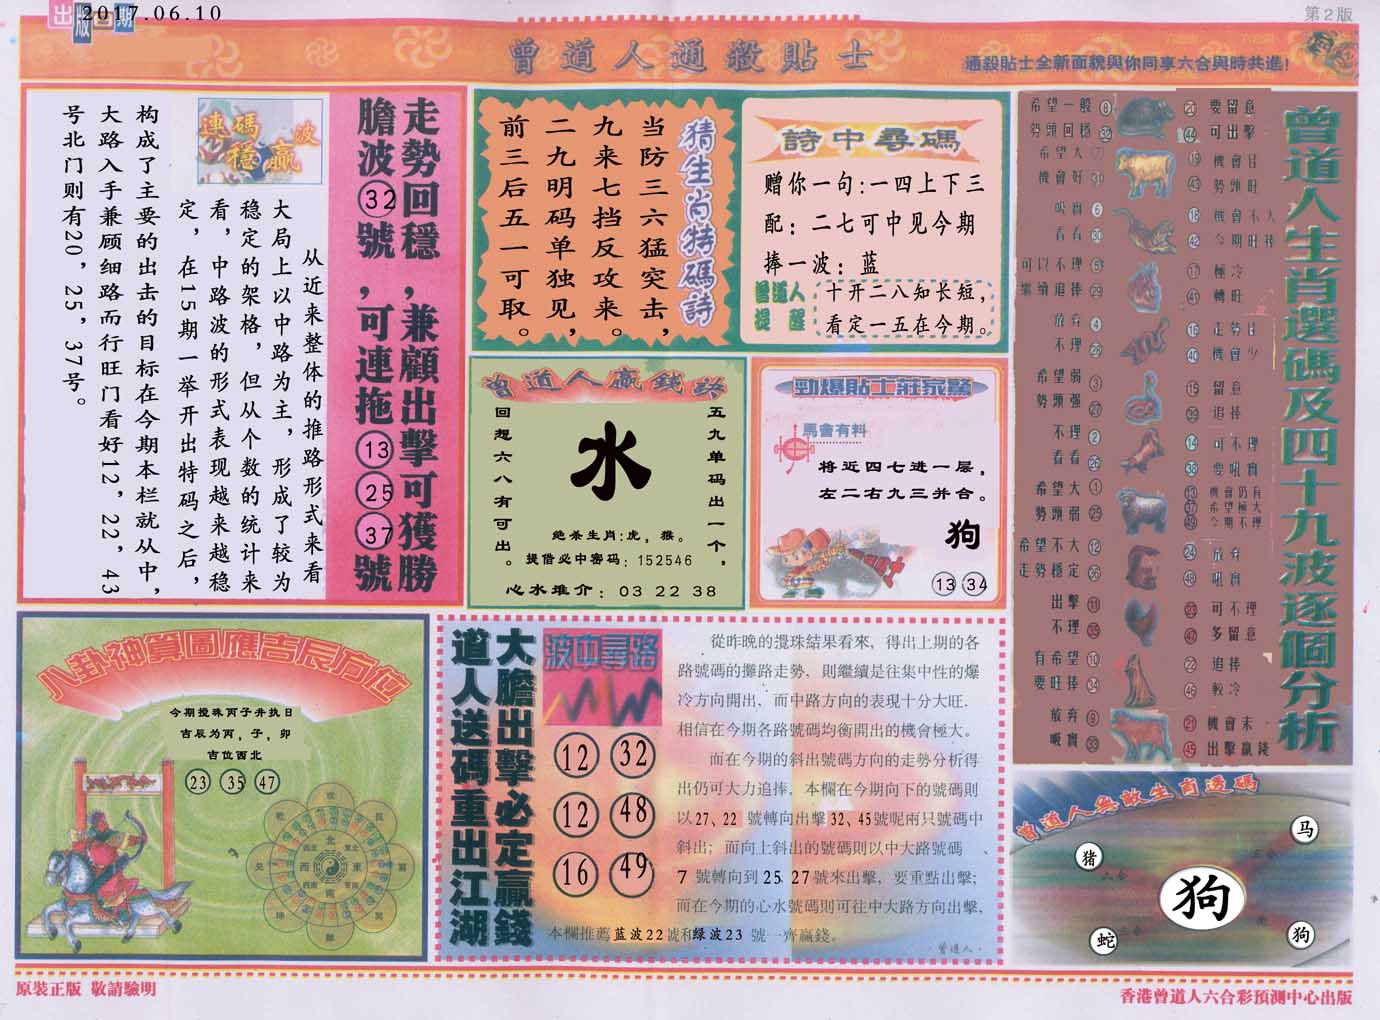 出版日期
2017.06.10
第2版
曾道人通殺貼士
通殺貼士全新面貌與你同享六合與時共進!
走勢回穩,兼顧出擊可獲勝
膽波32號,可連拖13 25 37號
連碼波
穩贏
从近来整体的推路形式来看
大局上以中路为主,形成了较为
稳定的架格,但从个数的统计来
看,中路波的形式表现越来越稳
定,在15期一举开出特码之后,
构成了主要的出击的目标在今期本栏就从中,
大路入手兼顾细路而行旺门看好12,22,43
号北门则有20,25,37号。
猜生肖特碼詩
当防三六猛突击,
九来七挡反攻来。
二九明码单独见,
前三后五一可取。
詩中尋碼
赠你一句:一四上下三
配:二七可中见今期
捧一波:蓝
曾道人
提醒
十开二八知长短,
看定一五在今期。
曾道人贏錢詩
五九单码出一个,
回想六八有可出。
水
绝杀生肖:虎,猴。
提借必中密码:152546
心水推介:03 22 38
勁爆貼士莊家驚
馬會有料
将近四七进一层,
左二右九三并合。
狗
13 34
曾道人生肖選碼及四十九波逐個分析
希望一般 8
勢頭回穩 32
希望大
機會好 31
吸實 6
看看 30
可以不理 5
繼續追捧 29
放弃 4
不理
希望弱 3
勢頭强 27
不理 2
看看 26
希望大 1
勢頭弱 25
希望不大 12
走勢穩定 36
出擊 11
不理 35
有希望 10
要旺捧 34
放弃 9
吸實 33
20 要留意
44 可出擊
19 機會佳
43 勢頭旺
18 機會不大
42 今期旺捧
17 極冷
41 轉旺
16 走勢佳
40 機會少
15 留意
39 追捧
14 可不理
38 要吸實
13 機會仍有
37 希望極大
49 今期不理
24 放弃
48 吸實
23 可不理
47 多留意
22 追捧
46 較冷
21 機會未
45 出擊贏錢
八卦神算圖應吉辰方位
今期搅珠丙子井执日
吉辰为丙,子,卯
吉位西北
23 35 47
北
東
南
西
大膽出擊必定贏錢
道人送碼重出江湖
波中尋路
12 32
12 48
16 49
從昨晚的攪珠結果看來,得出上期的各
路號碼的攤路走勢,則繼續是往集中性的爆
冷方向開出,而中路方向的表現十分大旺.
相信在今期各路號碼均衡開出的機會極大。
而在今期的斜出號碼方向的走勢分析得
出仍可大力追捧,本欄在今期向下的號碼則
以27、22 號轉向出擊32、45號呢兩只號碼中
斜出;而向上斜出的號碼則以中大路號碼、
7 號轉向到25 27號來出擊,要重點出擊;
而在今期的心水號碼則可往中大路方向出擊,
本欄推薦蓝波22號和绿波23 號一齊贏錢。
曾道人.
曾道人無敵生肖透碼
猪
马
狗
蛇
狗
六合
原裝正版 敬請驗明
香港曾道人六合彩預測中心出版